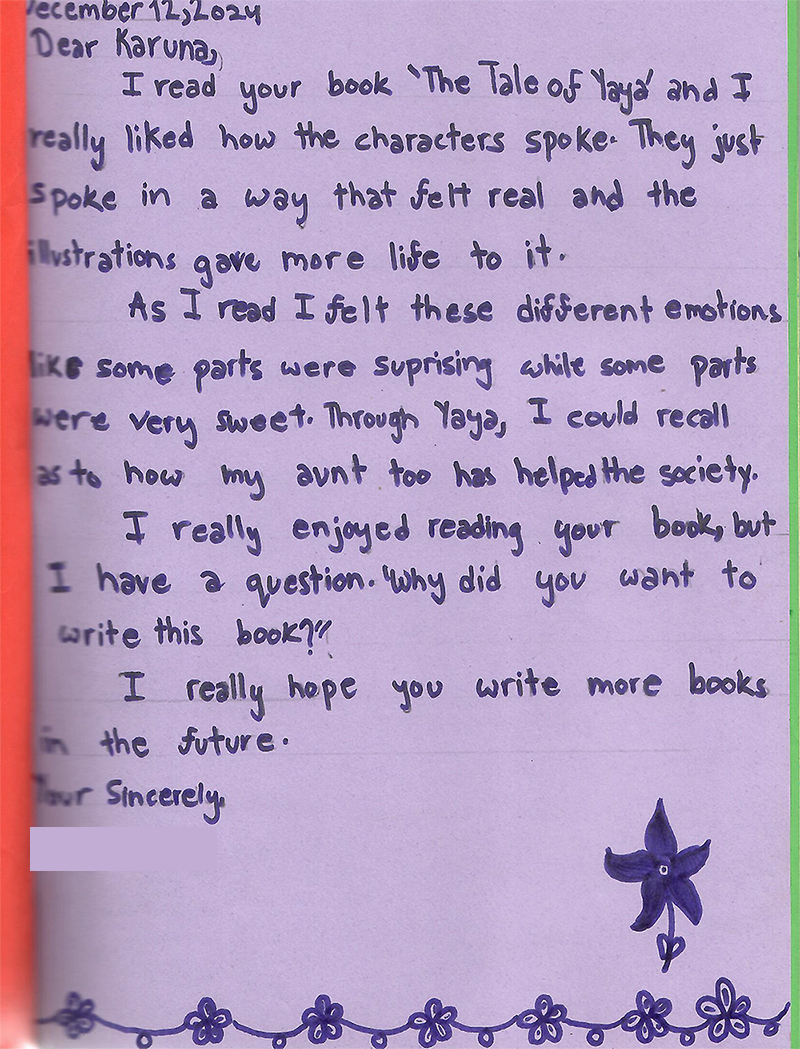 December 12, 2024
Dear Karuna,
I read your book 'The Tale of Yaya' and I
really liked how the characters spoke. They just
spoke in a way that felt real and the
illustrations gave more life to it.
As I read I felt these different emotions
like some parts were suprising while some parts
were very sweet. Through Yaya, I could recall
as to how my aunt too has helped the society.
I really enjoyed reading your book, but
I have a question. "Why did you want to
write this book?"
I really hope you write more books
in the future.
Your Sincerely,